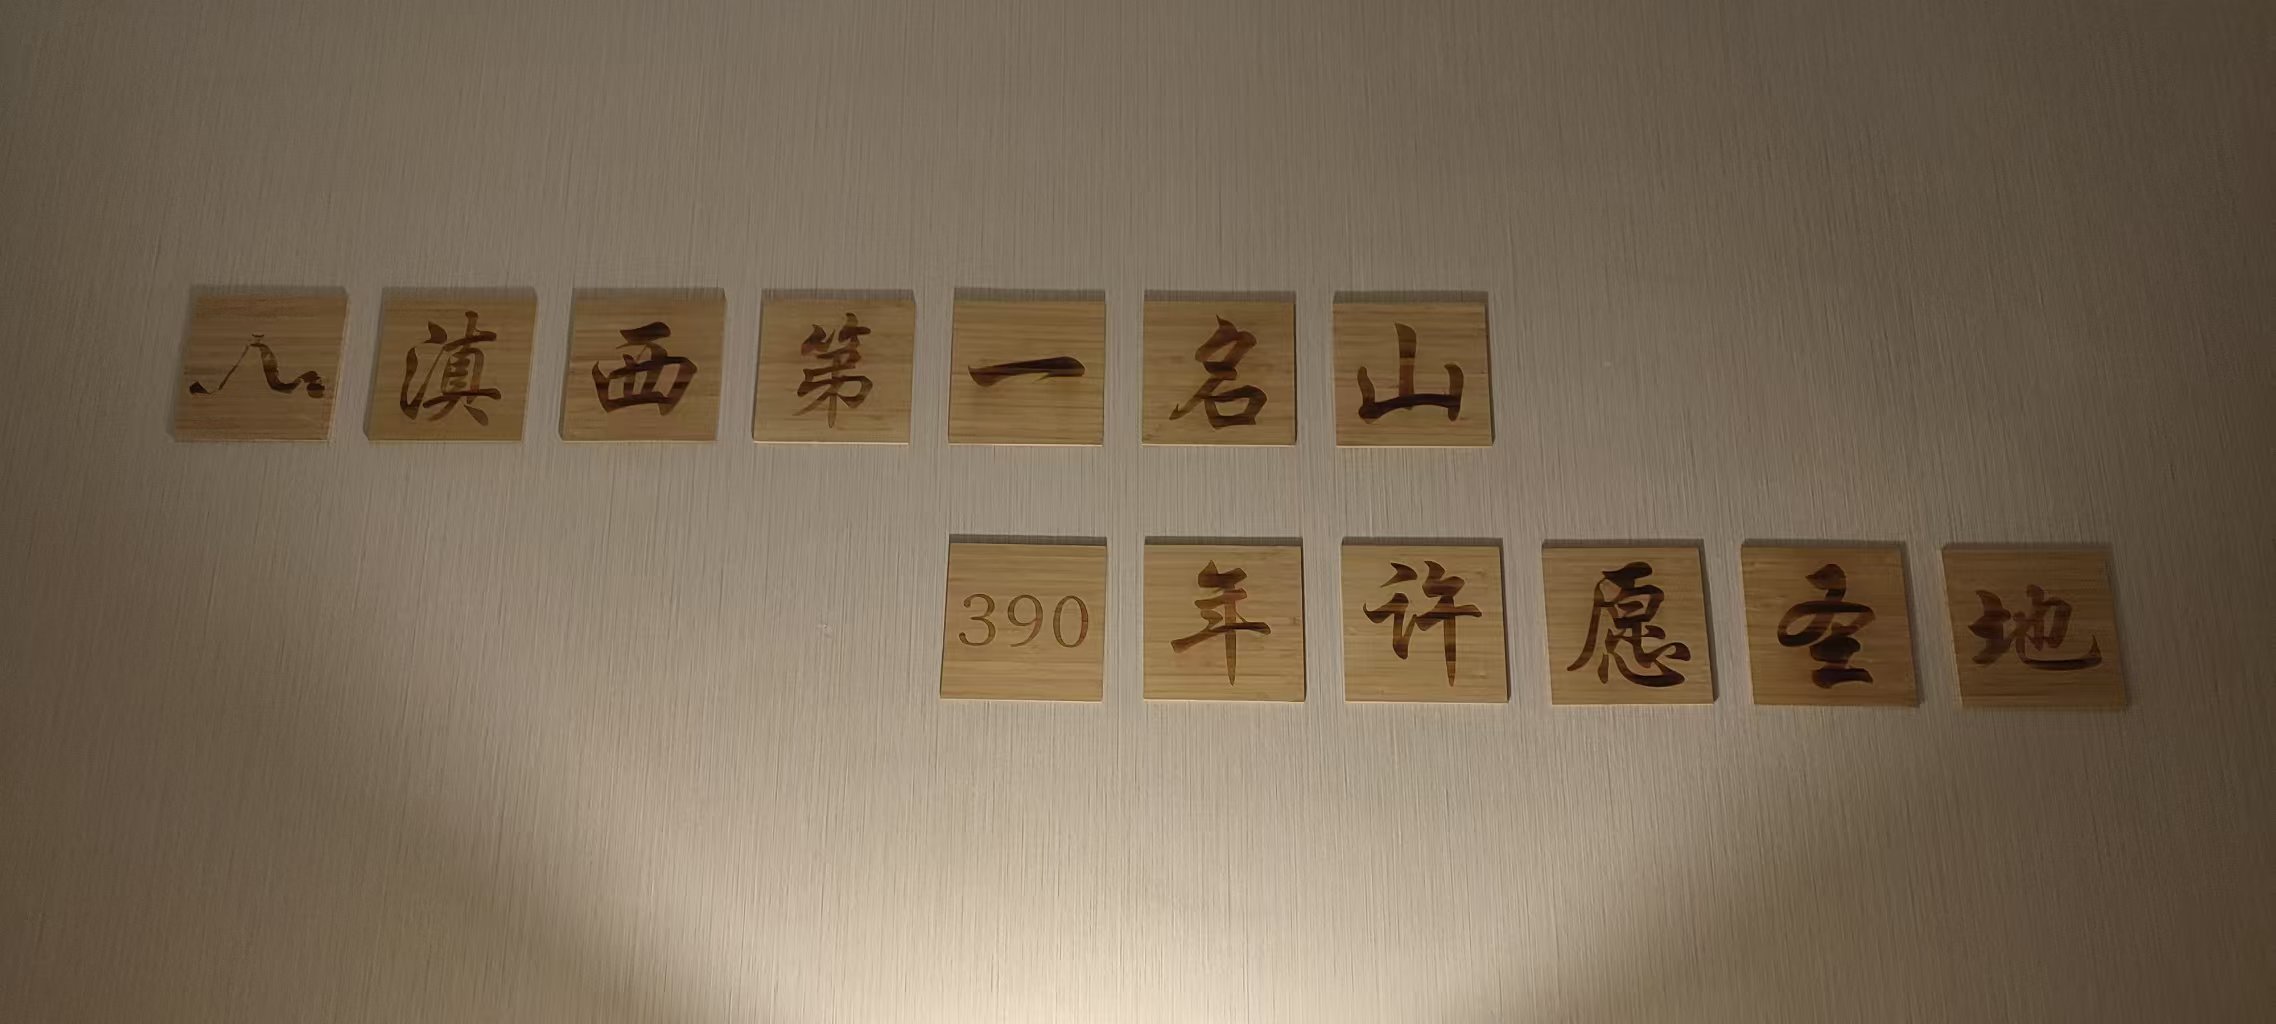 滇西第一名山
390年许愿圣地